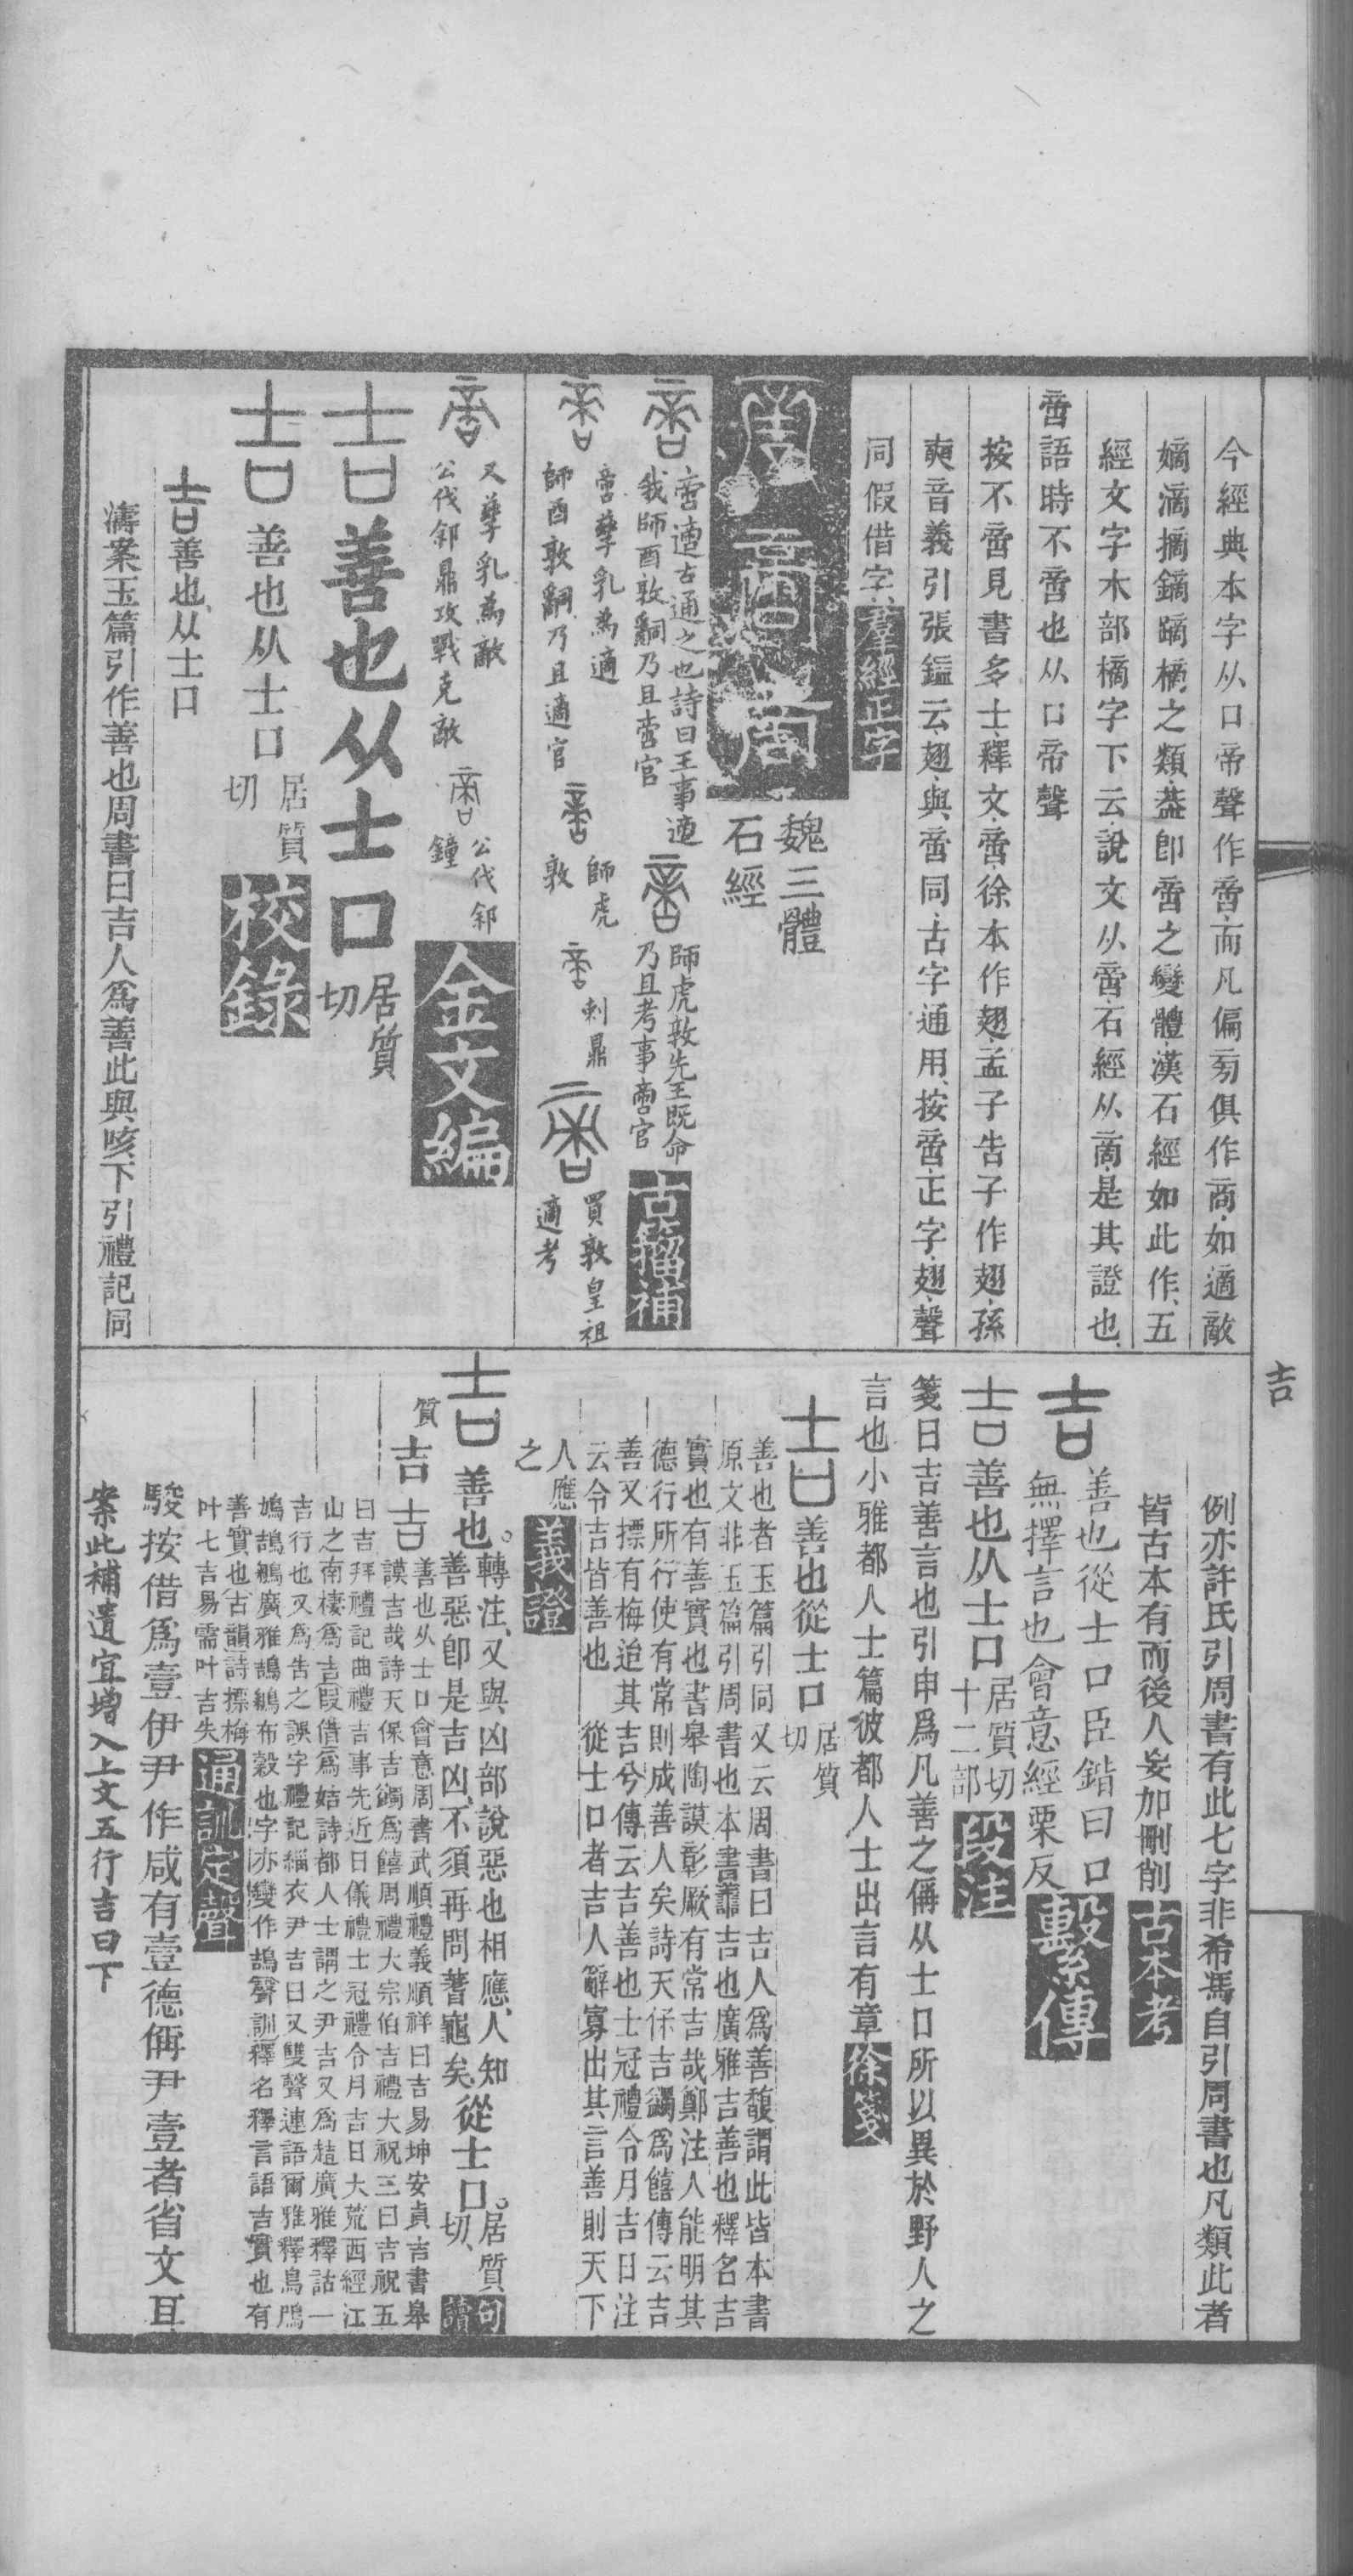 今經典本字从口帝聲作啻而凡偏旁俱作商如適敵
嫡滴摘鏑蹢樀之類葢卽啻之變體漢石經如此作五
經文字木部樀字下云說文从啻石經从商是其證也
啻語時不啻也从口帝聲
按不啻見書多士釋文啻徐本作翅孟子告子作翅孫
奭音義引張鎰云翅與啻同古字通用按啻正字翅聲
同假借字羣經正字
魏三體
石經
啻適古通之也詩曰王事適
我師酉敦嗣乃且啻官
師虎敦先王既命
乃且考事啻官
古籀補
啻孳乳爲適
師酉敦嗣乃且適官
師虎
敦
剌鼎
買敦皇祖
適考
又孳乳爲敵
公伐郐鼎攻戰克敵
公伐郐
鐘
金文編
吉善也从士口居質
切
吉善也从士口居質
切
校錄
吉善也从士口
濤案玉篇引作善也周書曰吉人爲善此與咳下引禮記同
吉
例亦許氏引周書有此七字非希馮自引周書也凡類此者
皆古本有而後人妄加刪削古本考
吉善也從士口臣鍇曰口
無擇言也會意經栗反
繫傳
吉善也从士口居質切
十二部
段注
箋曰吉善言也引申爲凡善之偁从士口所以異於野人之
言也小雅都人士篇彼都人士出言有章徐箋
吉善也從士口居質
切
善也者玉篇引同又云周書曰吉人爲善馥謂此皆本書
原文非玉篇引周書也本書譱吉也廣雅吉善也釋名吉
實也有善實也書皋陶謨彰厥有常吉哉鄭注人能明其
德行所行使有常則成善人矣詩天保吉蠲爲饎傳云吉
善又摽有梅迨其吉兮傳云吉善也士冠禮令月吉日注
云令吉皆善也 從士口者吉人辭寡出其言善則天下
人應
之
義證
吉善也。轉注、又與凶部說惡也相應、人知
善惡卽是吉凶、不須再問蓍龜矣、從士口。居質
切、
句
讀
質
吉 吉 善也从士口會意周書武順禮義順祥曰吉易坤安貞吉書皋
謨吉哉詩天保吉蠲爲饎周禮大宗伯吉禮大祝三曰吉祝五
曰吉拜禮記曲禮吉事先近日儀禮士冠禮令月吉日大荒西經江
山之南棲爲吉叚借爲姞詩都人士謂之尹吉又爲趌廣雅釋詁一
吉行也又爲告之誤字禮記緇衣尹吉曰又雙聲連語爾雅釋鳥鳲
鳩鴶鵴廣雅鴶鵴布穀也字亦變作鴶聲訓釋名釋言語吉實也有
善實也古韻詩摽梅
叶七吉易需叶吉失
通訓定聲
駿按借爲壹伊尹作咸有壹德偁尹壹者省文耳
案此補遺宜增入上文五行吉曰下